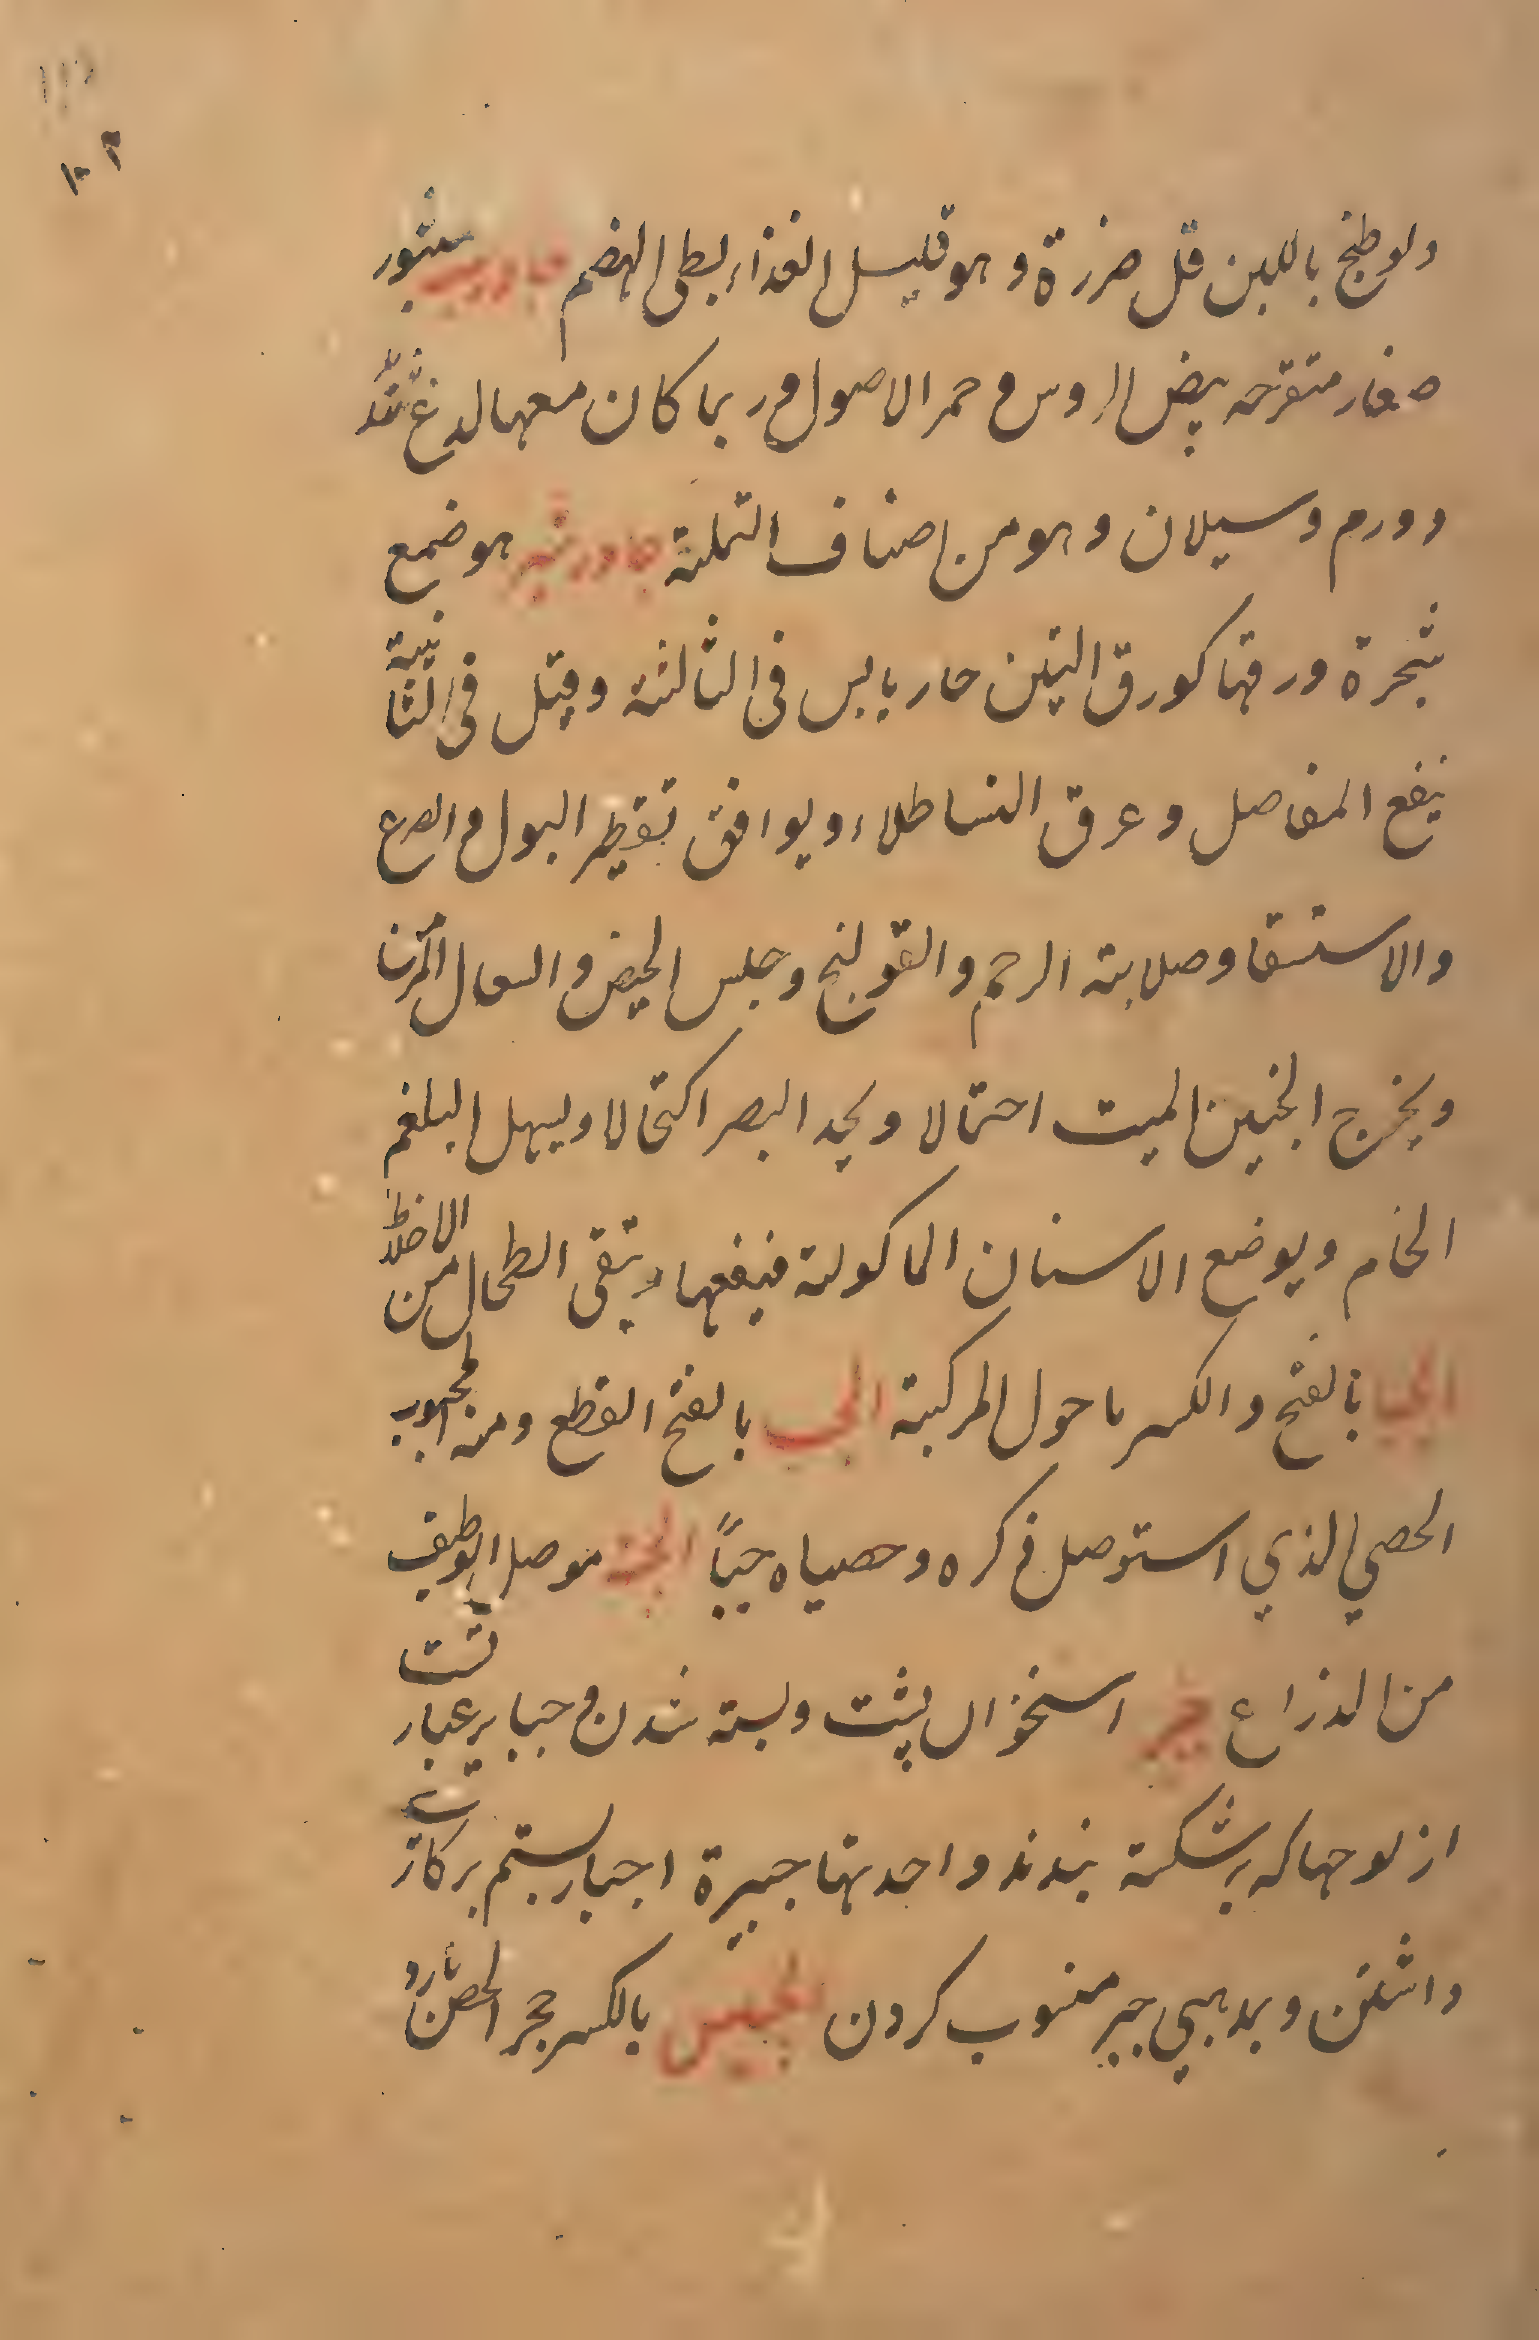 ١٠٢
ولو طبخ باللبن قل ضررة وهو قليل الغذاء بطی الهضم جاورسيه بثور
صغار متقرحه بيض الروس و حمر الاصول و ربما كان معها لدغ شديد
وورم وسيلان وهو من اصناف النملة جاوشير هو ضمع
شجرة ورقها كورق التين حار يابس فی الثالثة وقيل فی الثانية
ينفع المفاصل وعرق النسا طلاء ويوافق تقطير البول و الصرع
والاستسقا وصلابة الرحم والقولنج وحبس الحيض و السعال المزمن
ويخرج الجنين الميت احتمالا ويحد البصر اكتحالا ويسهل البلغم
الخام ويوضع الاسنان الماكولة فينفعها وينقی الطحال من الاخلاط
الجبا بالفتح والكسر ما حول المركبة الجب بالفتح القطع ومنه المجبوب
الخصي الذي استوصل ذكره وخصياه جبًا الجبة موصل الوظيف
من الذراع جبر استخوان پشت وبسته شدن و جباير عبارتست
از لوحها كه بر شكسته بندند واحدتها جبيرة اجبار بستم بر كاری
داشتن وبد بهي جبر منسوب كردن الجبس بالكسر حجر الحصن بارد